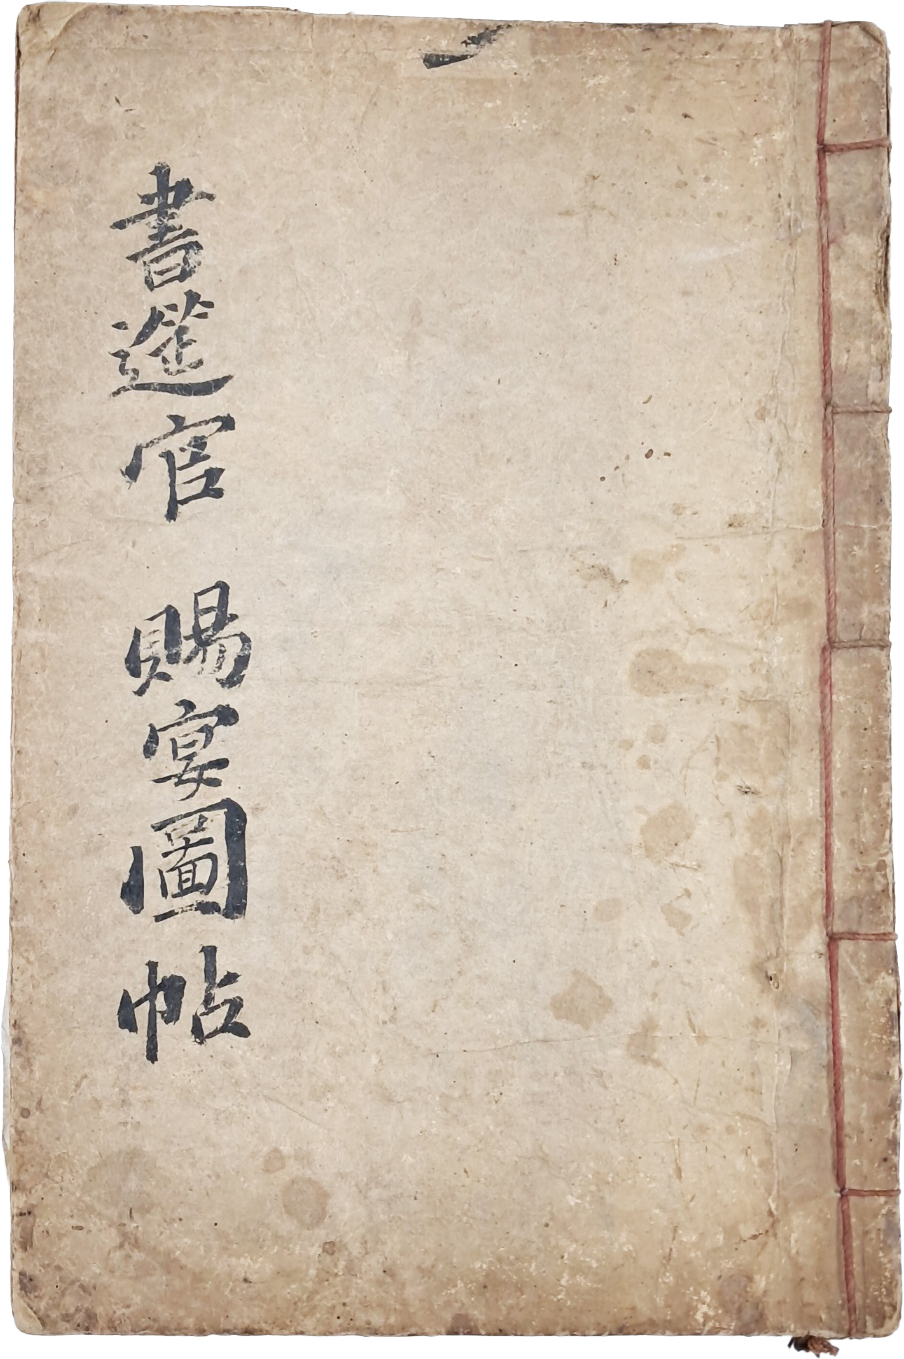 書筵官 賜宴圖帖